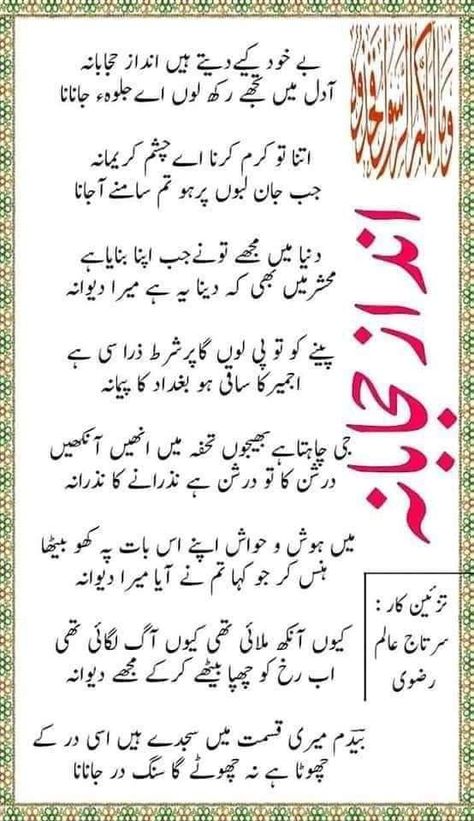 وما اتاكم الرسول فخذوه
انداز حجابانہ
بے خود کیے دیتے ہیں انداز حجابانہ
آدل میں تجھے رکھ لوں اے جلوہء جانانا
اتنا تو کرم کرنا اے چشم کریمانہ
جب جان لبوں پر ہو تم سامنے آجانا
دنیا میں مجھے تونے جب اپنا بنایا ہے
محشر میں بھی کہ دینا یہ ہے میرا دیوانہ
پینے کو تو پی لوں گا پر شرط ذرا سی ہے
اجمیر کا ساقی ہو بغداد کا پیمانہ
جی چاہتا ہے بھیجوں تحفہ میں انھیں آنکھیں
درشن کا تو درشن ہے نذرانے کا نذرانہ
میں ہوش و حواش اپنے اس بات پہ کھو بیٹھا
ہنس کر جو کہا تم نے آیا میرا دیوانہ
کیوں آنکھ ملائی تھی کیوں آگ لگائی تھی
اب رخ کو چھپا بیٹھے کرکے مجھے دیوانہ
بیدم میری قسمت میں سجدے ہیں اسی در کے
چھوٹا ہے نہ چھوٹے گا سنگ در جانانا
تزئین کار :
سرتاج عالم
رضوی